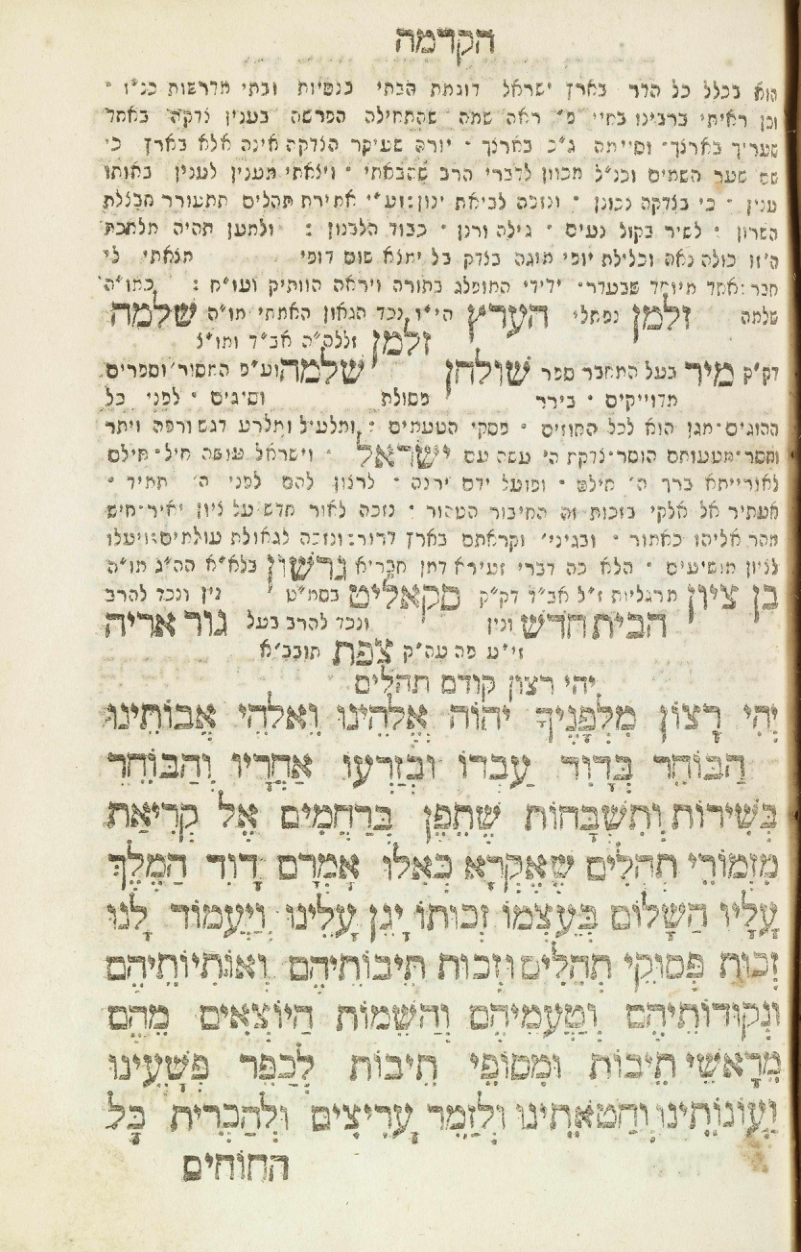 הקדמה
הוא בכלל כל הדר בארץ ישראל דוגמת הבתי כנסיות ובתי מדרשות כנ״ו ׃
וכן ראיתי ברבינו בחיי פ׳ ראה שמה שהתחילה הפרשה בענין צדקה באחד
שעריך בארצך׃ וסיימה ג״כ בארצך ׃ יורה שעיקר הצדקה אינה אלא בארץ כי
שם שער השמים וכנ״ל מכוון לדברי הרב שהבאתי ׃ ויצאתי מענין לענין באותו
ענין ׃ כי בצדקה נכונן ׃ ונזכה לביאת ינון׃ וע״י אמירת תהלים תתעורר חבצלת
השרון ׃ לשיר בקול נעים ׃ גילה ורנן ׃ כבוד הלבנון ׃ ולמען תהיה מלאכת
ה׳ זו כולה נאה וכלילת יופי מוגה בצדק בל ימצא שום דופי מצאתי לי
חבר אחד מיוחד שבעדר׃ ידידי המופלג בתורה ויראה הוותיק ועו״ח ׃ כמו״ה
שלמה זלמן נפתלי הערץ הי״ו נכד הגאון האמתי מו״ה שלמה
זלמן זללה״ה אב״ד ומו״ל
דק״ק מיר בעל המחבר ספר שולחן שלמה וע״פ המסור׳ וספרים
מדוייקים ׃ בירר פסולת וסיגים ׃ לפני כל
ההוגים׃ מגן הוא לכל החוזים ׃ פסקי הטעמים ׃ ומלעיל ומלרע דגש ורפה ויתר
וחסר׃ מעמותם הוסר׃ צדקת ה׳ עשה עם ישראל ׃ וישראל עושה חיל׃ חילם
לאורייתא ברך ה׳ חילם ׃ ופועל ידם ירצה ׃ לרצון להם לפני ה׳ תמיד ׃
אעתיר אל אלקי בזכות זה החיבור הטהור ׃ נזכה לאור חדש על ציון יאיר׃ חיש
מהר אליהו כאמור ׃ ובגיני׳ וקראתם בארץ דרור׃ ונזכה לגאולת עולמים׃ ויעלו
לציון מושיעים ׃ הלא כה דברי זעירא דמן חבריא גרשון בלא״א הה״ג מו״ה
בן ציון מרגליות ז״ל אב״ד דק״ק סקאליט בסמ״ט נין ונכד להרב
הבית חדש ונין ונכד להרב בעל גור אריה
זי״ע פה עה״ק צפת תובב״א
יהי רצון קודם תהלים
יְהִי רָצוֹן מִלְּפָנֶיךָ יְהוָֹה אֱלֹהֵינוּ וֵאלֹהֵי אֲבוֹתֵינוּ
הַבּוֹחֵר בְּדָוִד עַבְדּוֹ וּבְזַרְעוֹ אַחֲרָיו וְהַבּוֹחֵר
בְּשִׁירוֹת וְתִשְׁבָּחוֹת שֶׁתֵּפֶן בְּרַחֲמִים אֶל קְרִיאַת
מִזְמוֹרֵי תְהִלִּים שֶׁאֶקְרָא כְּאִלּוּ אֲמָרָם דָּוִד הַמֶּלֶךְ
עָלָיו הַשָּׁלוֹם בְּעַצְמוֹ זְכוּתוֹ יָגֵן עָלֵינוּ וְיַעֲמוֹד לָנוּ
זְכוּת פְּסוּקֵי תְהִלִּים וּזְכוּת תֵּיבוֹתֵיהֶם וְאוֹתִיּוֹתֵיהֶם
וּנְקוּדוֹתֵיהֶם וְטַעֲמֵיהֶם וְהַשֵּׁמוֹת הַיּוֹצְאִים מֵהֶם
מֵרָאשֵׁי תֵיבוֹת וּמִסּוֹפֵי תֵיבוֹת לְכַפֵּר פְּשָׁעֵינוּ
וַעֲוֹנוֹתֵינוּ וְחַטֹּאתֵינוּ וּלְזַמֵּר עָרִיצִים וּלְהַכְרִית כָּל
הַחוֹחִים